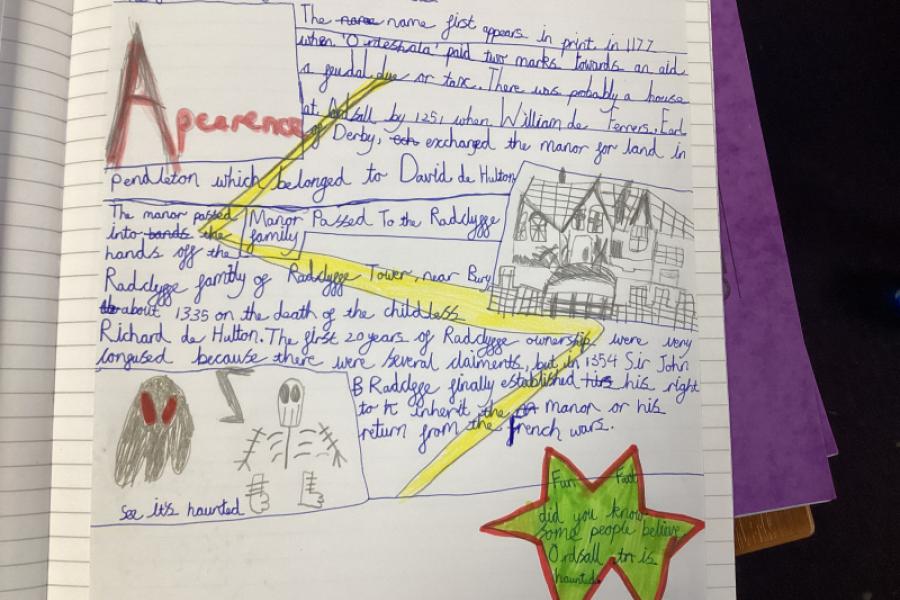 Apearence
The name name first appears in print in 1177
when 'Ordeshala' paid two marks towards an aid
a feudal due or tax. There was probably a house
at Ordsall by 1251 when William de Ferrers, Earl
of Derby, exchanged the manor for land in
pendleton which belonged to David de Hulton
Manor Passed To the Radclygge
family
The manor passed
into hands the
hands off the
Radclygge family of Radclygge Tower, near Bury
about 1335 on the death of the childless
Richard de Hulton. The first 20 years of Radclygge ownership were very
longused because there were several claiments, but in 1354 Sir John
B Radclygge finally established his his right
to inherit the manor or his
return from the french wars.
See it's haunted
Fun Fact
did you know
some people believe
Ordsall is
haunted